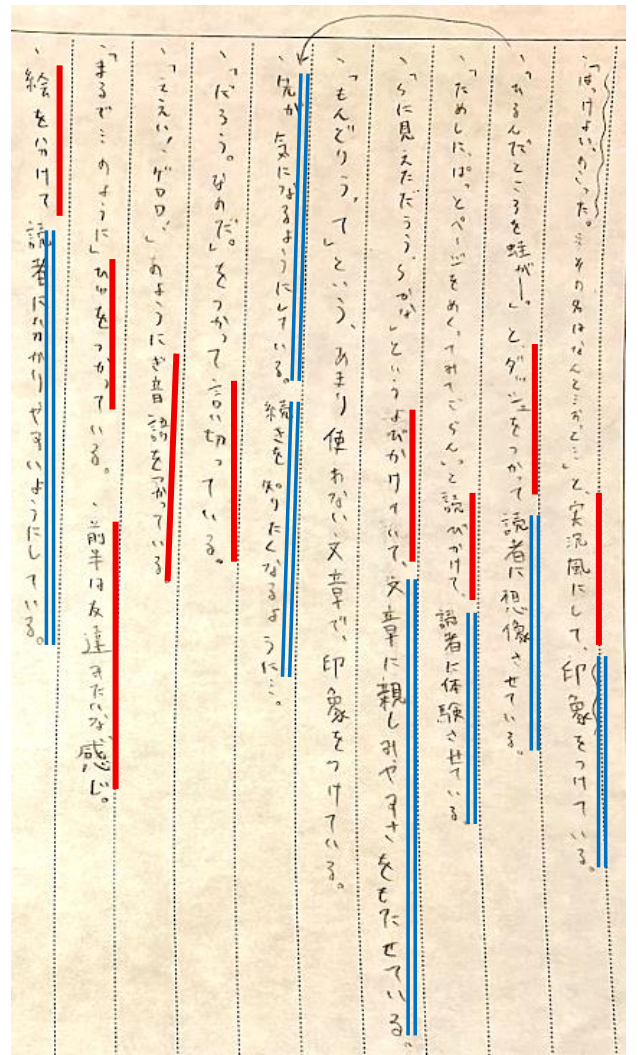 、「はっけよい、のこった。…その名はなんと…おっと…」と、実況風にして、印象をつけている。
、「あるんだところを蛙が―。」と、ダッシュをつかって読者に想像させている。
、「ためしに、ぱっとページをめくってみてごらん。」と読びかけて、読者に体験させている
、「らに見えただろう、らかな」というよびかけていて、文章に親しみやすさをもたせている。
、「もんどりうって」という、あまり使わない文章で、印象をつけている。
、先が気になるようにしている。続きを知りたくなるように…。
、「だろう。なのだ。」をつかって言い切っている。
、「ええい!ゲロロ、」のようにぎ音語をつかっている
、「まるで…のように」ひゆをつかっている。、前半は友達みたいな感じ。
、絵を分けて読者に分かりやすいようにしている。